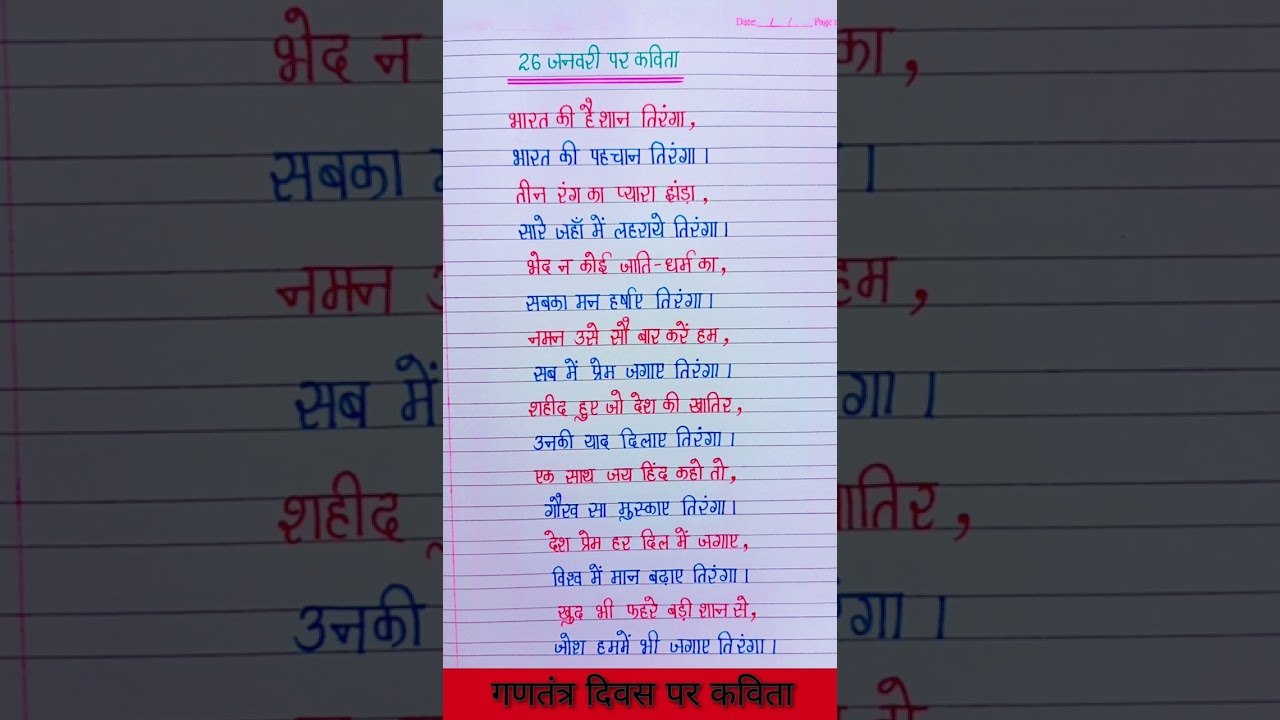 Date: / / Page
26 जनवरी पर कविता
भारत की है शान तिरंगा,
भारत की पहचान तिरंगा।
तीन रंग का प्यारा झंड़ा,
सारे जहाँ में लहराये तिरंगा।
भेद न कोई जाति-धर्म का,
सबका मन हर्षाए तिरंगा।
नमन उसे सौ बार करें हम,
सब में प्रेम जगाए तिरंगा।
शहीद हुए जो देश की खातिर,
उनकी याद दिलाए तिरंगा।
एक साथ जय हिंद कहो तो,
गौरव सा मुस्काए तिरंगा।
देश प्रेम हर दिल में जगाए,
विश्व में मान बढ़ाए तिरंगा।
खुद भी फहरे बड़ी शान से,
जोश हममें भी जगाए तिरंगा।
गणतंत्र दिवस पर कविता